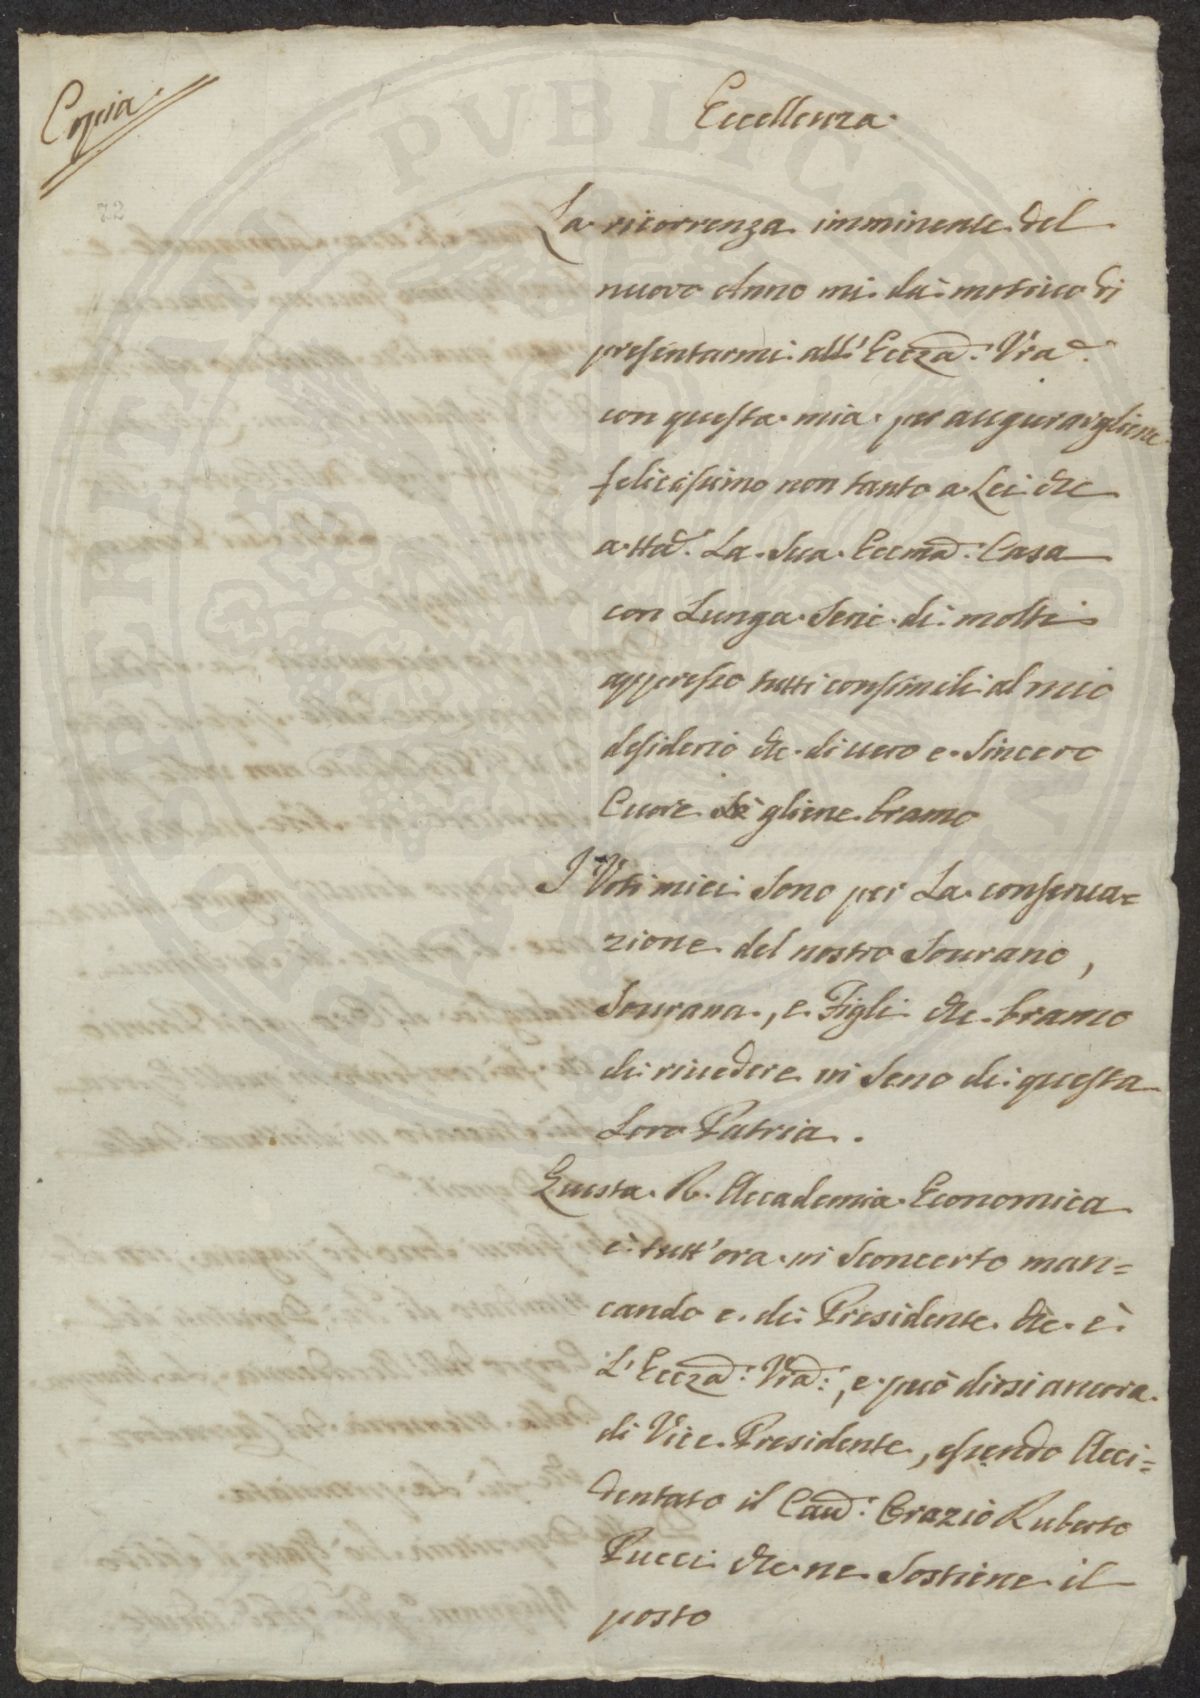 Copia.
Eccellenza.
La ricorrenza imminente del
nuovo Anno mi dà motivo di
presentarmi all' Eccza: Vra:
con questa mia per augurargliene
felicissimo non tanto a Lei che
a tta: La Sua Eccma: Casa
con Lunga Serie di molti
appresso tutti consimili al mio
desiderio che di vero e Sincero
Cuore gliene bramo
I Voti miei Sono per La conserva=
zione del nostro Sovrano,
Sovrana, e Figli che bramo
di rivedere in Seno di questa
Loro Patria.
Questa R. Accademia Economica
è tutt'ora in Sconcerto man=
cando e di Presidente che è
L' Eccza: Vra:, e può dirsi ancora
di Vice Presidente, essendo Acci=
dentato il Cav: Orazio Ruberto
Pucci che ne Sostiene il
posto
PVBLICAE